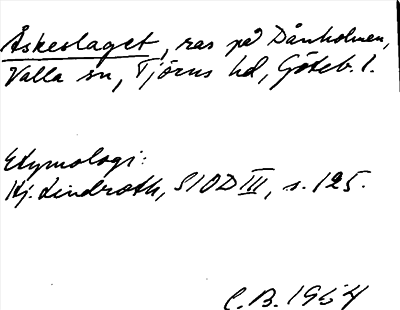 Åskeslaget, ras på Dånholmen,
Valla sn, Tjörns hd, Göteb. l.
Etymologi:
Hj. Lindroth, SIOD III, s. 125.
C.B. 1964